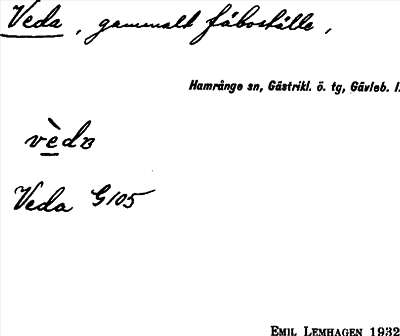 Veda, gammalt fäboställe,
Hamrånge sn, Gästrikl. ö. tg, Gävleb. l.
vèdɐ
Veda G105
EMIL LEMHAGEN 1932